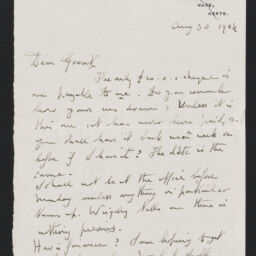 WARE,
HERTS.
Aug 30 1904
Dear Grant
The only £20.0.0 cheque is
one payable to me. Do you remember
how yours was drawn? Unless it is
this one, it has never been paid, so
you shall have it back next week or
before if I have it? The date is the
same.
I shall not be at the office before
Monday unless anything in particular
turns up. Wrigley tells me there is
nothing
How is finance? I am hoping to get